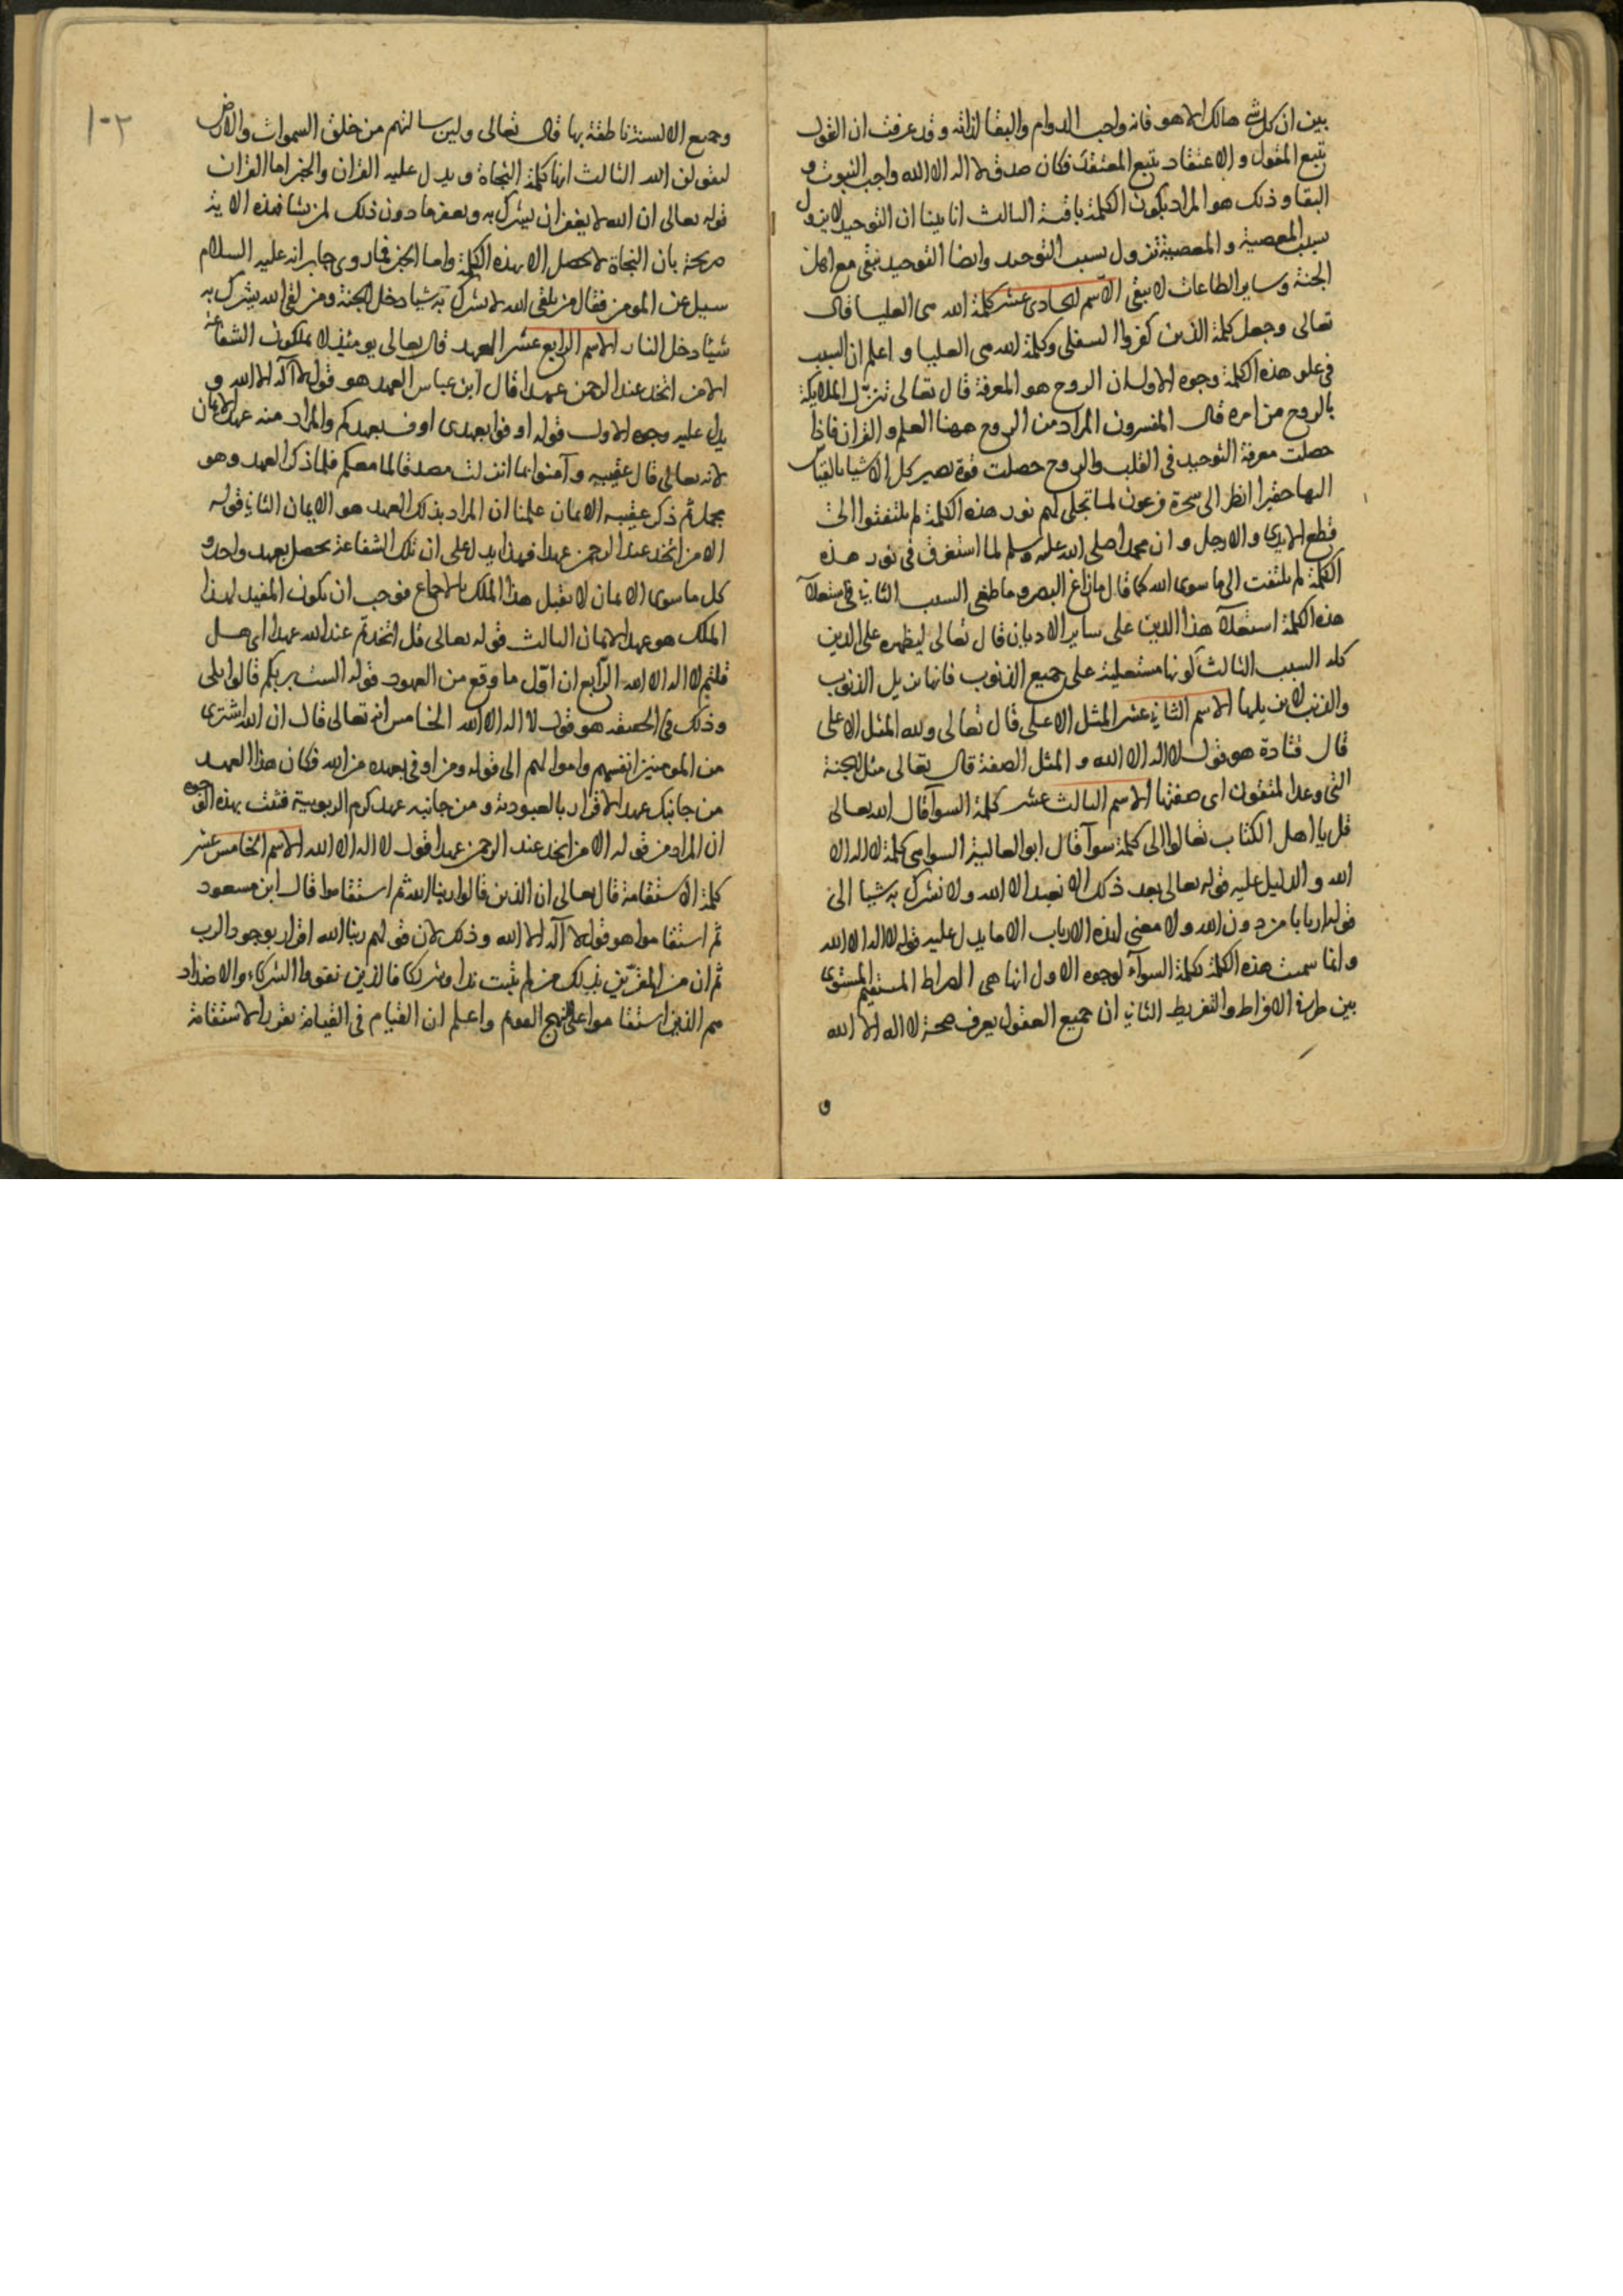 بين ان كل شي هالك الا هو فانه واجب الدوام والبقا لذاته وقد عرفت ان القول
يتبع المقول والاعتقاد يتبع المعتقد فكان صدق لا اله الا الله واجب الثبوت و
البقا وذلك هو المراد بكون الكلمة باقية الثالث انا بينا ان التوحيد لا يزول
بسبب المعصية والمعصية تزول بسبب التوحيد وايضا التوحيد يبقى مع اهل
الجنة وساير الطاعات لا يبقى الاسم الحادى عشر كلمة الله هى العليا قال
تعالى وجعل كلمة الذين كفروا السفلى وكلمة الله هى العليا واعلم ان السبب
فى علو هذه الكلمة وجوه الاول ان الروح هو المعرفة قال تعالى تنزل الملايكة
بالروح من امره قال المفسرون المراد من الروح ههنا العلم والقران فاذا
حصلت معرفة التوحيد فى القلب والروح حصلت قوة يصير كل الاشيا بالقياس
اليها حقيرا انظر الى سحرة فرعون لما تجلى لهم نور هذه الكلمة لم يلتفتوا الى
قطع الايدى والارجل وان محمدا صلى الله عليه وسلم لما استغرق فى نور هذه
الكلمة لم يلتفت الى ما سوى الله كما قال ما زاغ البصر وما طغى السبب الثانى فى استعلآ
هذه الكلمة استعلآ هذا الدين على ساير الاديان قال تعالى ليظهره على الدين
كله السبب الثالث كونها مستعلية على جميع الذنوب فانها يزيل الذنوب
والذنب لا يزيلها الاسم الثانى عشر المثل الاعلى قال تعالى ولله المثل الاعلى
قال قتادة هو قول لا اله الا الله والمثل الصفة قال تعالى مثل الجنة
التى وعد المتقون اى صفتها الاسم الثالث عشر كلمة السوآ قال الله تعالى
قل يا اهل الكتاب تعالوا الى كلمة سوآ قال ابو العالية السوا هى كلمة لا اله الا
الله والدليل عليه قوله تعالى بعد ذلك الا نعبد الا الله ولا نشرك به شيا الى
قوله اربابا من دون الله ولا معنى لهذه الارباب الا ما يدل عليه قوله لا اله الا الله
وانما سميت هذه الكلمة بكلمة السوآء لوجوه الاول انها هى الصراط المستقيم المستوى
بين طرفى الافراط والتفريط الثانى ان جميع العقول يعرف صحة لا اله الا الله
و
١٠٢
وجميع الالسنة ناطقة بها قال تعالى ولين سالتهم من خلق السموات والارض
ليقولن الله الثالث انها كلمة النجاة ويدل عليه القران والخبر اما القران
قوله تعالى ان الله لا يغفر ان يشرك به ويغفر ما دون ذلك لمن يشا فهذه الاية
صريحة بان النجاة لا يحصل الا بهذه الكلمة واما الخبر فما روى جابر انه عليه السلام
سيل عن المومن فقال من يلقى الله لا يشرك به شيا دخل الجنة ومن لقى الله يشرك به
شيئا دخل النار الاسم الرابع عشر العهد قال تعالى يومئذ لا يملكون الشفاعة
الا من اتخذ عند الرحمن عهدا قال ابن عباس العهد هو قول لا آله الا الله و
يدل عليه وجوه الاول قوله اوفوا بعهدى اوف بعهدكم والمراد منه عهد الايمان
لانه تعالى قال عقيبه وآمنوا بما انزلت مصدقا لما معكم فلما ذكر العهد وهو
مجمل ثم ذكر عقيبه الايمان علمنا ان المراد بذلك العهد هو الايمان الثانى قوله
الا من اتخذ عند الرحمن عهدا فهذا يدل على ان تلك الشفاعة يحصل بعهد واحد و
كل ما سوى الايمان لا يقبل هذا الملك بالاجماع فوجب ان يكون المفيد لهذا
الملك هو عهد الايمان الثالث قوله تعالى قل اتخذتم عند الله عهدا اى هل
قلتم لا اله الا الله الرآبع ان اوّل ما وقع من العهود قوله الست بربكم قالوا بلى
وذلك فى الحقيقه هو قول لا اله الا الله الخامس انه تعالى قال ان الله اشترى
من المومنين انفسهم واموالهم الى قوله ومن اوفى بعهده من الله فكان هذا العهد
من جانبك عهد الاقرار بالعبودية ومن جانبه عهد كرم الربوبية فثبت بهذه الوجوه
ان المراد من قوله الا من اتخذ عند الرحمن عهدا قول لا اله الا الله الاسم الخامس عشر
كلمة الاستقامة قال تعالى ان الذين قالوا ربنا الله ثم استقاموا قال ابن مسعود
ثم استقاموا هو قول لا آله الا الله وذلك لان قولهم ربنا الله اقرار بوجود الرب
ثم ان من المقرّين بذلك من لم يثبت ندا وشريكا فالذين نفوا الشركاء والاضداد
هم الذين استقاموا على النهج القويم واعلم ان القيام فى القيامة بقدر الاستقامة